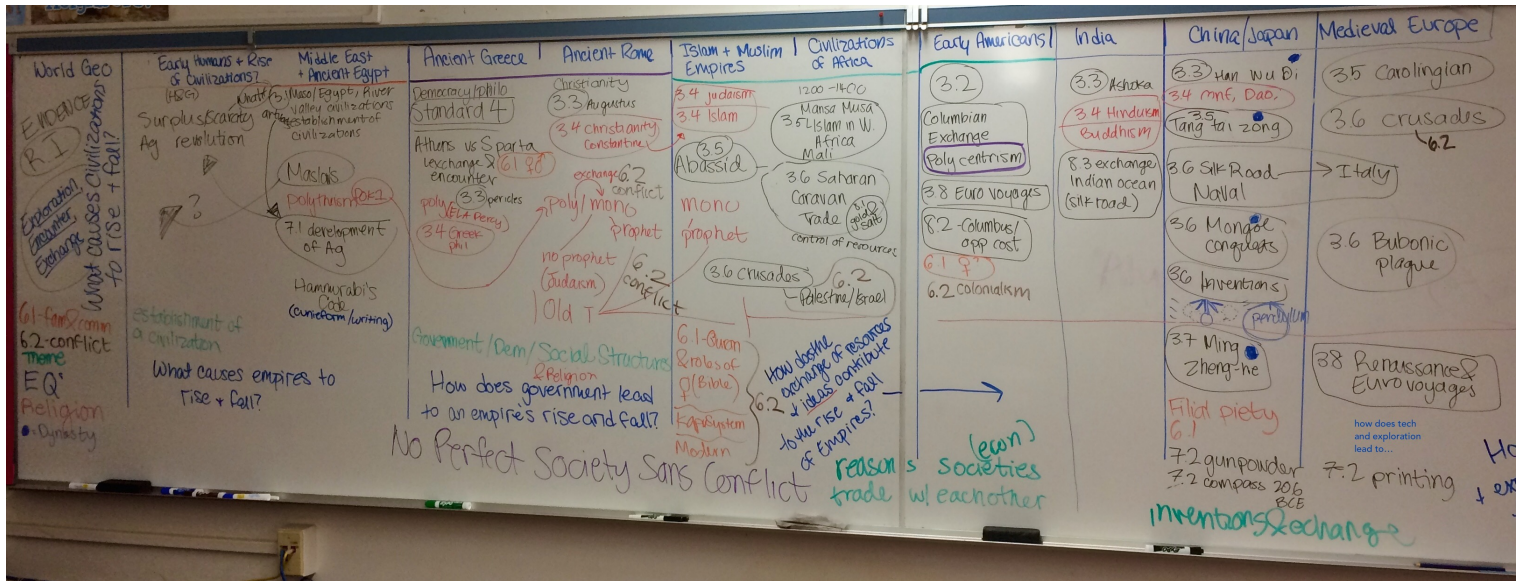 World Geo
EVIDENCE
R.I
Exploration,
Encounter,
Exchange,
What causes civilizations
to rise + fall?
6.1-fam&comm
6.2-conflict
Theme
EQ:
Religion
= Dynasty
Early Humans + Rise
of Civilizations?
(H&G)
Surplus/Scarcity
Ag revolution
?
establishment of
a civilization
What causes empires to
rise + fall?
Middle East
+ Ancient Egypt
Meso/Egypt, River
valley civilizations
establishment of
civilizations
Maslow's
polytheism
7.1 development
of Ag
Hammurabi's
Code
(cuneiform/writing)
Ancient Greece
Democracy/philo
Standard 4
Athens vs Sparta
exchange &
encounter
6.1 ♀
3.3 pericles
poly
3.4 Greek
phil
Government/Dem/Social Structures
& Religion
How does government lead
to an empire's rise and fall?
Ancient Rome
Christianity
3.3 Augustus
3.4 Christianity
Constantine
exchange
6.2
conflict
poly/mono
prophet
no prophet
(Judaism)
Old T
6.2
conflict
Islam + Muslim
Empires
3.4 Judaism
3.4 Islam
3.5
Abassid
mono
prophet
3.6 Crusades
6.2
Palestine/Israel
6.1-Quran
& roles of
♀ (Bible)
Kapu System
Modern
6.2
Civilizations
of Africa
1200-1400
Mansa Musa
3.5 Islam in W.
Africa
Mali
3.6 Saharan
Caravan
Trade
8.1
gold &
salt
control of resources
How does the
exchange of resources
+ ideas contribute
to the rise + fall
of Empires?
No Perfect Society Sans Conflict
Early Americans
3.2
Columbian
Exchange
Polycentrism
3.8 Euro voyages
8.2-Columbus/
opp cost
6.1 ♀
6.2 colonialism
(econ)
reasons societies
trade w/ eachother
India
3.3 Ashoka
3.4 Hinduism
Buddhism
8.3 exchange
Indian ocean
(silk road)
China/Japan
3.3 Han Wu Di
3.4 mnf, Dao,
3.5
Tang tai zong
3.6 Silk Road
Naval
3.6 Mongol
conquests
3.6 Inventions
3.7 Ming
Zheng-he
Filial piety
6.1
7.2 gunpowder
7.2 compass 206
BCE
inventions&exchange
Medieval Europe
3.5 Carolingian
3.6 crusades
6.2
Italy
3.6 Bubonic
plague
3.8 Renaissance &
Euro voyages
how does tech
and exploration
lead to...
7.2 printing